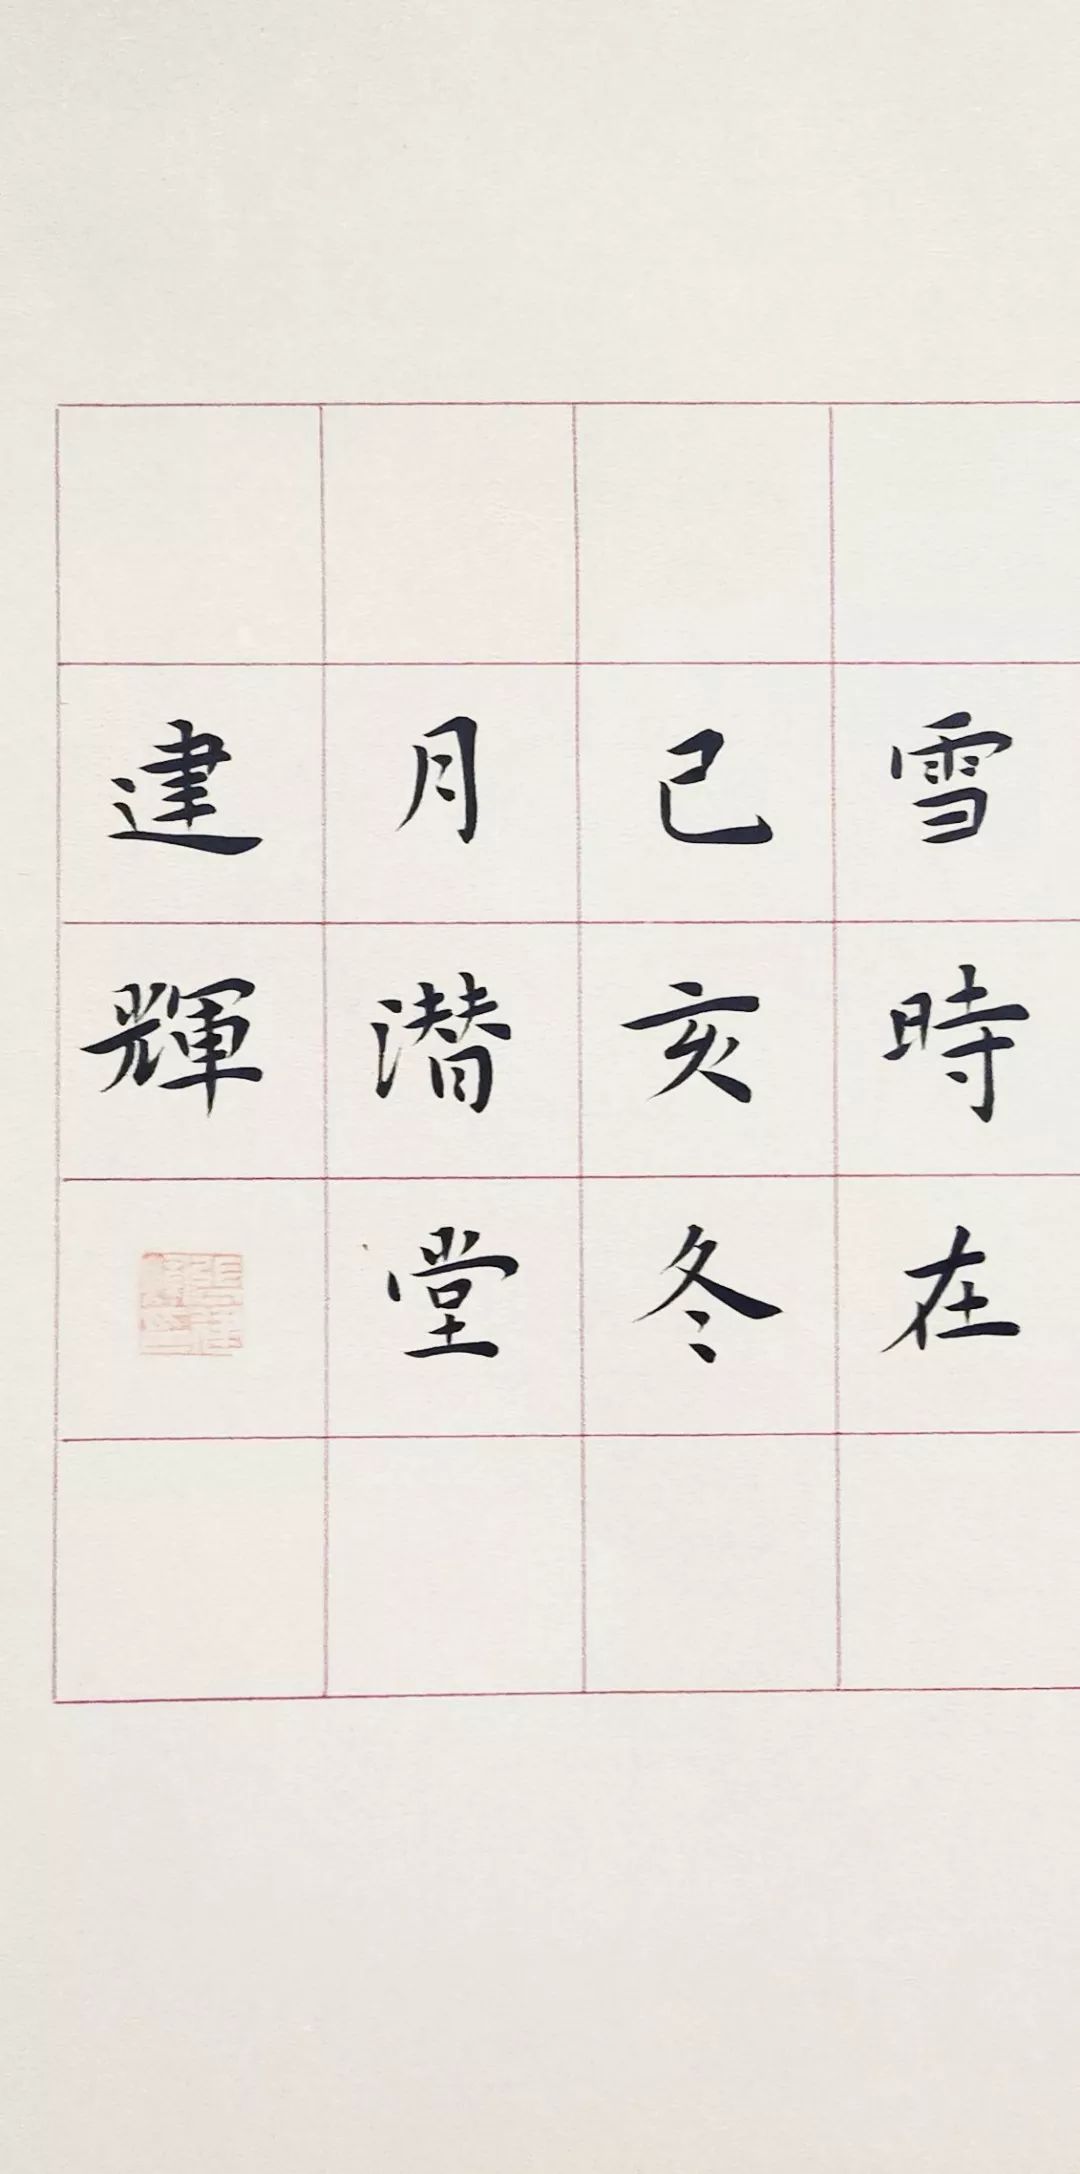 雪時在
己亥冬
月潛堂
建輝